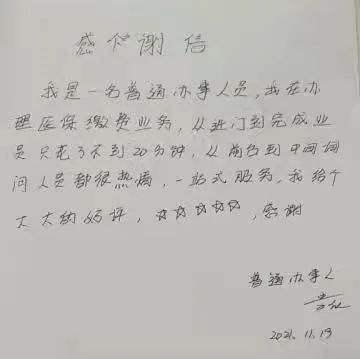 感谢信
我是一名普通办事人员，我在办
理医保缴费业务，从进门到完成业
员只花了不到20分钟，从前台到中间询
问人员都很热情，一站式服务，我给个
大大的好评，☆☆☆☆☆，感谢
普通办事人
2021.11.19